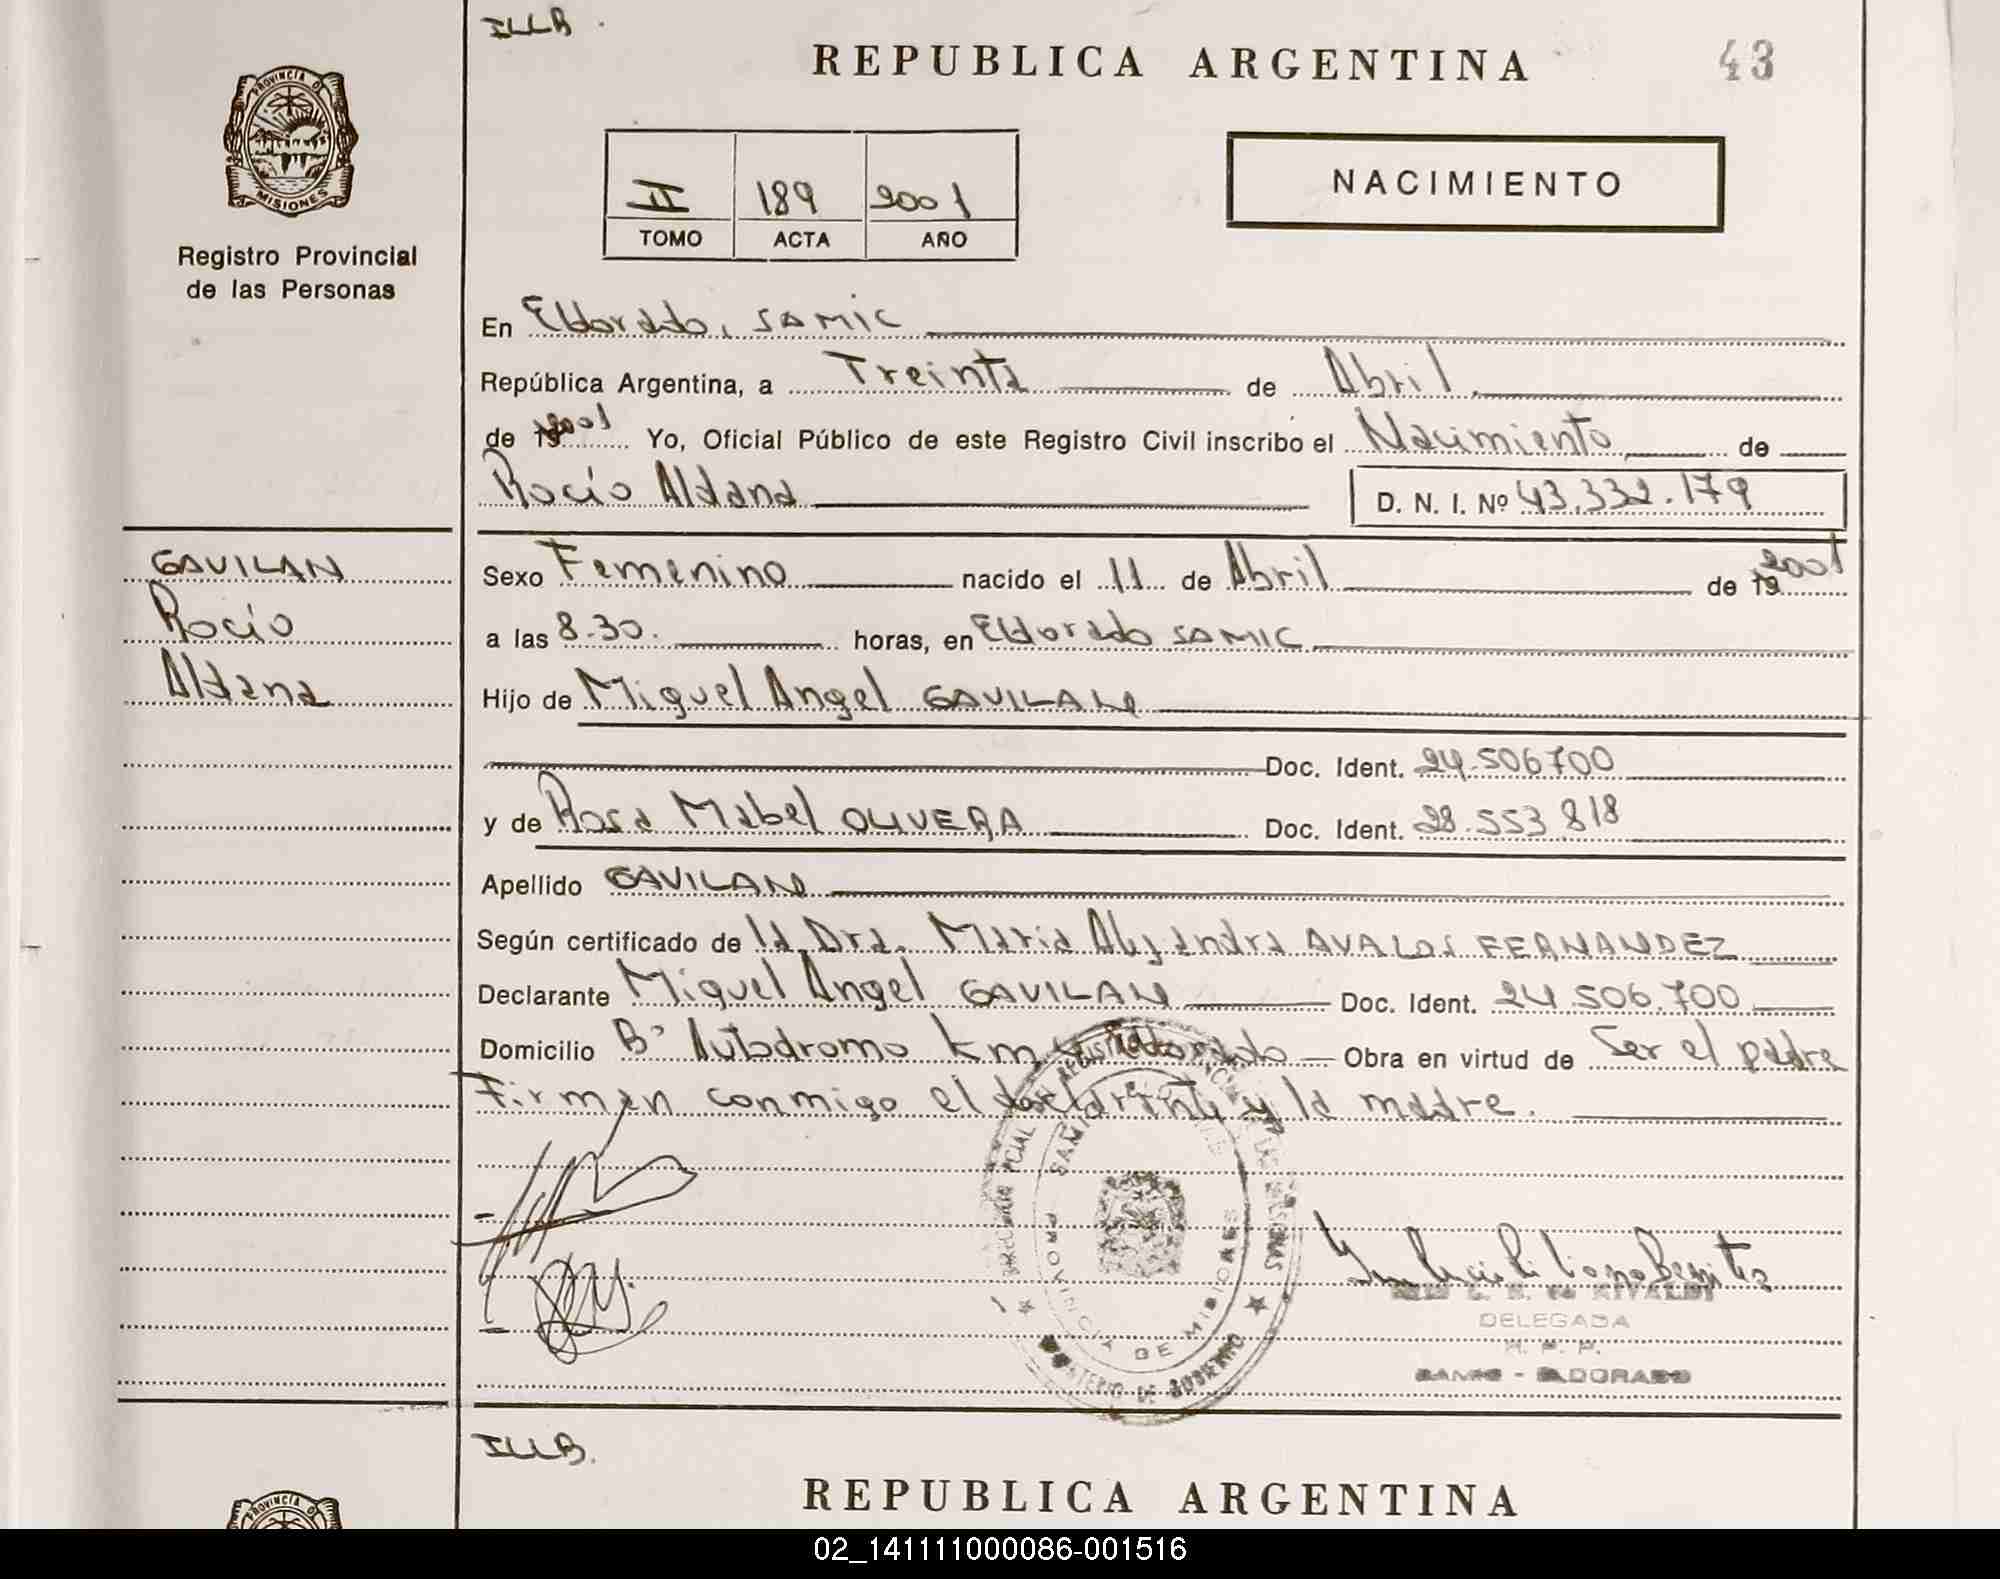 ILLB.
REPUBLICA ARGENTINA
43
PROVINCIA DE
MISIONES
Registro Provincial
de las Personas
II 189 2001
TOMO ACTA AÑO
NACIMIENTO
En Eldorado, SAMIC
República Argentina, a Treinta de Abril
de 19 2001 Yo, Oficial Público de este Registro Civil inscribo el Nacimiento de
Rocío Aldana D. N. I. Nº 43.332.179
GAVILAN
Rocío
Aldana
Sexo Femenino nacido el 11 de Abril de 19 2001
a las 8.30. horas, en Eldorado SAMIC
Hijo de Miguel Angel GAVILAN
Doc. Ident. 24.506700
y de Rosa Mabel OLIVERA Doc. Ident. 28.553 818
Apellido GAVILAN
Según certificado de la Dra. Maria Alejandra AVALOS FERNANDEZ
Declarante Miguel Angel GAVILAN Doc. Ident. 24.506.700
Domicilio Bº Autodromo km Eldorado Obra en virtud de Ser el padre
Firman conmigo el declarante y la madre.
SAMIC
PROVINCIA DE MISIONES
MINISTERIO DE GOBIERNO
DELEGADA
R. P. P.
SAMIC - ELDORADO
ILLB.
REPUBLICA ARGENTINA
PROVINCIA DE
02_141111000086-001516